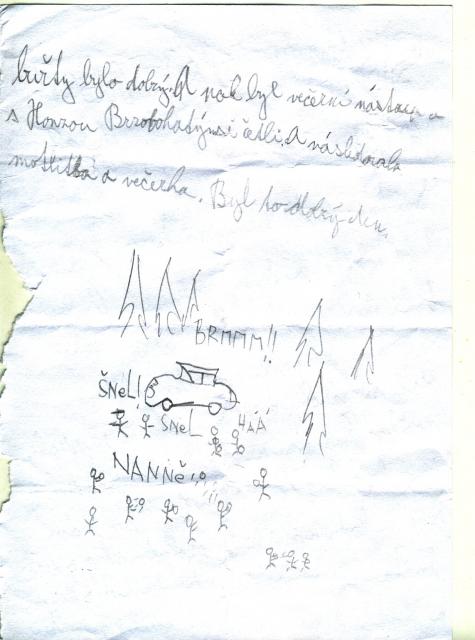 buřty bylo dobrý. A pak byl večerní nástup a
s Honzou Brzobohatým si četli. A následovala
motlitba a večerka. Byl to dobrý den.
BRMMM!!
ŠNEL!
ŠNEL HÁÁ
NANNĚ!